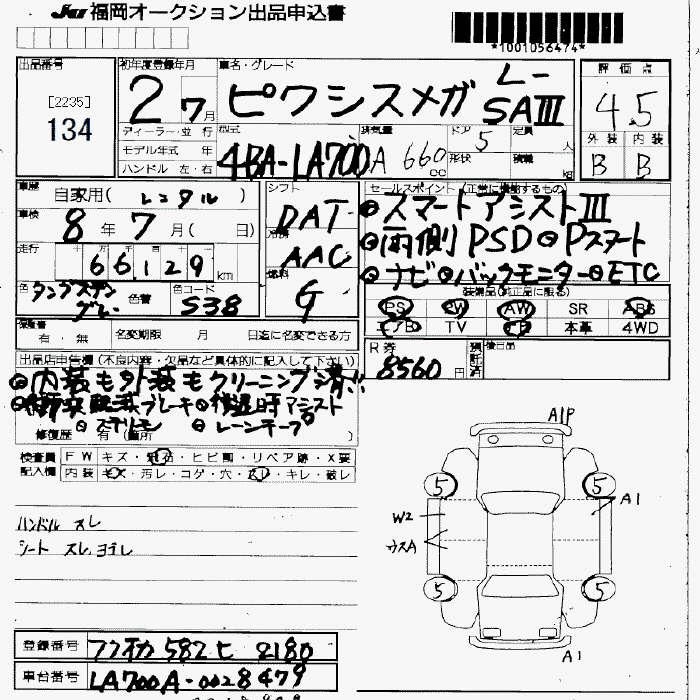 JU 福岡オークション出品申込書
*1001056474*
出品番号
[2235]
134
初年度登録年月
2 7月
車名・グレード
ピクシスメガ L-SAIII
評価点
4.5
外装 内装
B B
ディーラー・並行
モデル年式 年
ハンドル 左・右
型式
4BA-LA700A
排気量
660 cc
ドア 5
形状
定員 人
積載 kg
車歴
自家用( レンタル )
車検
8年 7月( 日)
走行
66,129 km
色 タングステングレー
色替
色コード S38
シフト
DAT
冷房
AAC
燃料
G
セールスポイント (正常に機能するもの)
◎スマートアシストIII
◎両側PSD◎Pスタート
◎ナビ◎バックモニター◎ETC
装備品(純正品に限る)
PS PW AW SR ABS
エアB TV ナビ 本革 4WD
保険書
有・無
名変期限 月 日迄に名変できる方
R券
8560円
預託済
後日品
出品店申告欄(不良内容・欠品など具体的に記入して下さい)
◎内装も外装もクリーニング済!!
◎衝突軽減ブレーキ◎後退時アシスト
◎ステリモ ◎レーンキープ
修復歴 有 (箇所
検査員記入欄
FW キズ・飛石・ヒビ割・リペア跡・X要
内装 キズ・汚レ・コゲ・穴・スレ・キレ・破レ
ハンドル スレ
シート スレ、ヨゴレ
A1P
5
5
A1
W2
ウスA
5
5
A1
登録番号 フクオカ 582 ヒ 2180
車台番号 LA700A-0028479